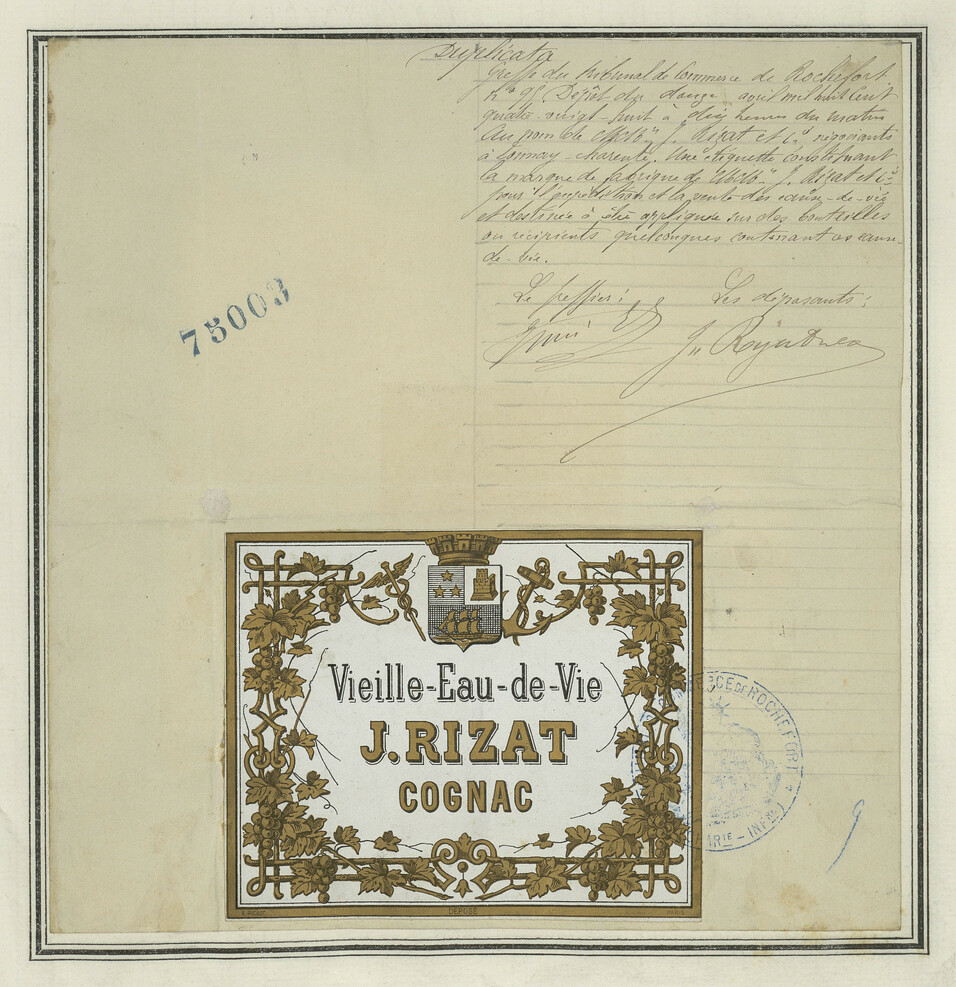 Duplicata
Greffe du tribunal de Commerce de Rochefort
N° 95. Dépôt du douze avril mil huit cent
quatre-vingt-huit à dix heures du matin
Au nom de MM. J. Rizat et Cie négociants
à Tonnay-Charente. Une étiquette constituant
la marque de fabrique de MM. J. Rizat et Cie
pour l'expédition et la vente des eaux-de-vie
et destinée à être appliquée sur des bouteilles
ou récipients quelconques contenant ces eaux-
de-vie.
Le greffier: Les déposants:
75003
Vieille-Eau-de-Vie
J. RIZAT
COGNAC
DÉPOSÉ
PARIS
CE DE ROCHEFORT